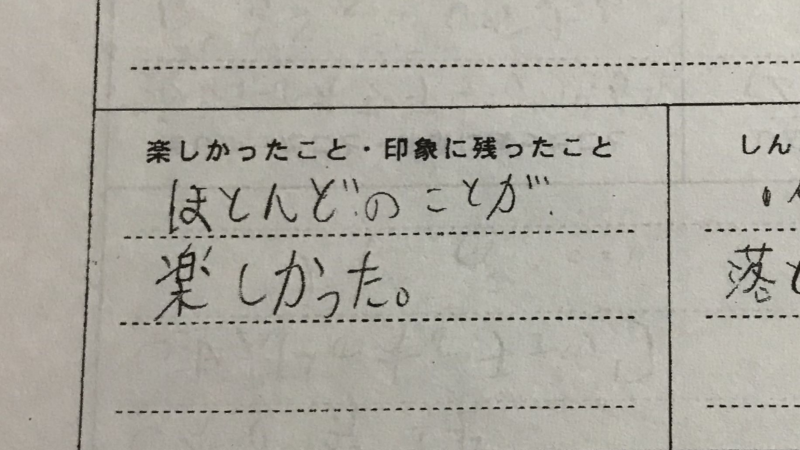 楽しかったこと・印象に残ったこと
しん
ほとんどのことが
楽しかった。
落